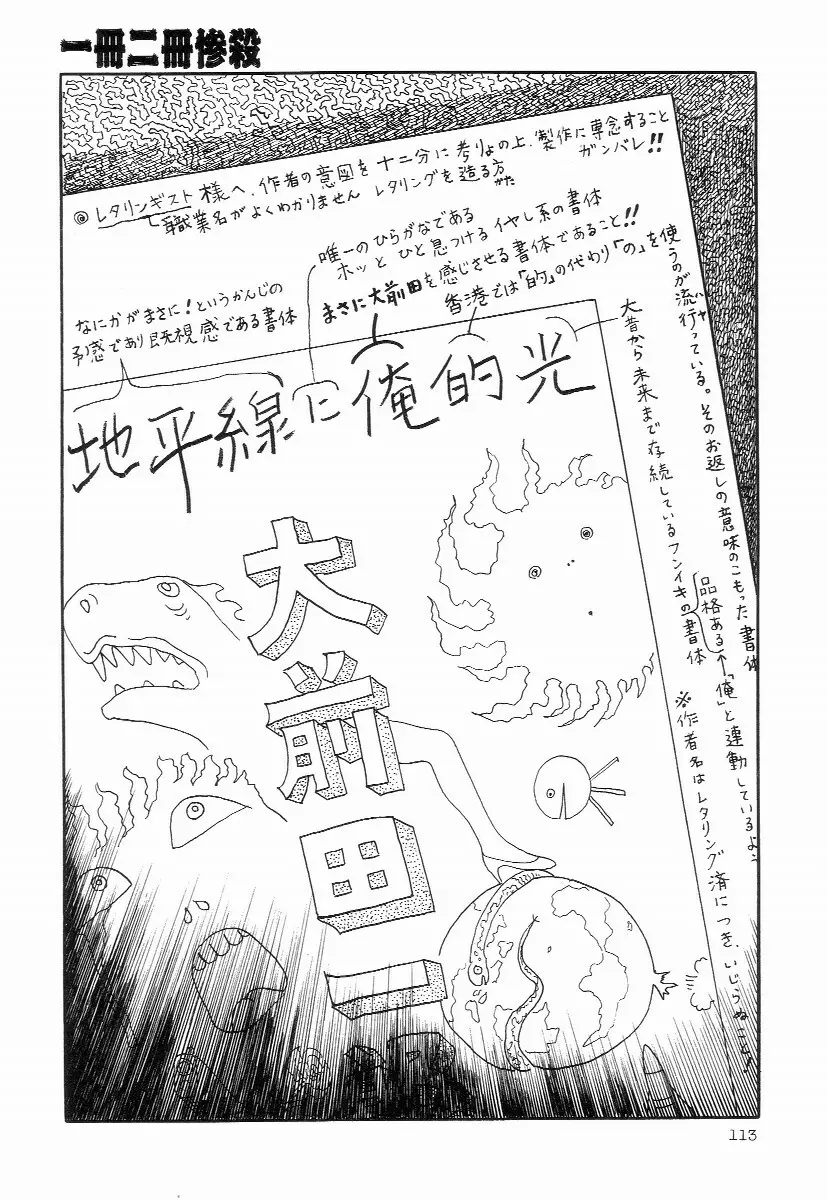 一冊二冊惨殺
◎レタリンギスト様へ、作者の意図を十二分に考りょの上、製作に専念すること
ガンバレ!!
職業名がよくわかりません レタリングを造る方
かた
唯一のひらがなである
ホッと ひと息つける イヤし系の書体
なにかがまさに!というかんじの
予感であり既視感である書体
まさに大前田を感じさせる書体であること!!
香港では「的」の代わり「の」を使うのが流行っている。そのお返しの意味のこもった書体
ハヤ
大昔から未来まで存続しているフンイキの書体
品格ある
←「俺」と連動しているよ
※作者名はレタリング済につき、いじらぬこと
地平線に俺的光
大前田一
113